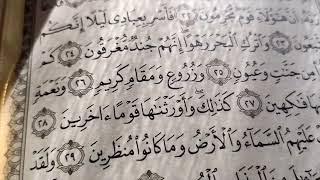 هَٰٓؤُلَآءِ قَوْمٌ مُّجْرِمُونَ ٢٢ فَأَسْرِ بِعِبَادِى لَيْلًا إِنَّكُم
مُّتَّبَعُونَ ٢٣ وَٱتْرُكِ ٱلْبَحْرَ رَهْوًا إِنَّهُمْ جُندٌ مُّغْرَقُونَ ٢٤ كَمْ
مِن جَنَّٰتٍ وَعُيُونٍ ٢٥ وَزُرُوعٍ وَمَقَامٍ كَرِيمٍ ٢٦ وَنَعْمَةٍ
فَٰكِهِينَ ٢٧ كَذَٰلِكَ وَأَوْرَثْنَٰهَا قَوْمًا ءَاخَرِينَ ٢٨
عَلَيْهِمُ ٱلسَّمَآءُ وَٱلْأَرْضُ وَمَا كَانُوا۟ مُنظَرِينَ ٢٩ وَلَقَدْ